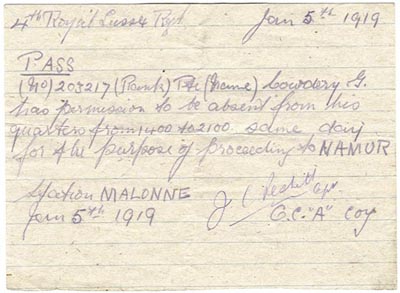 4th Royal Sussex Rgt Jan 5th 1919
PASS
(No) 203217 (Rank) Pte (Name) Cowdery G.
has permission to be absent from his
quarters from 1400 to 2100 same day
for the purpose of proceeding to NAMUR
Station MALONNE
Jan 5th 1919
J C Capt.
O.C. "A" Coy